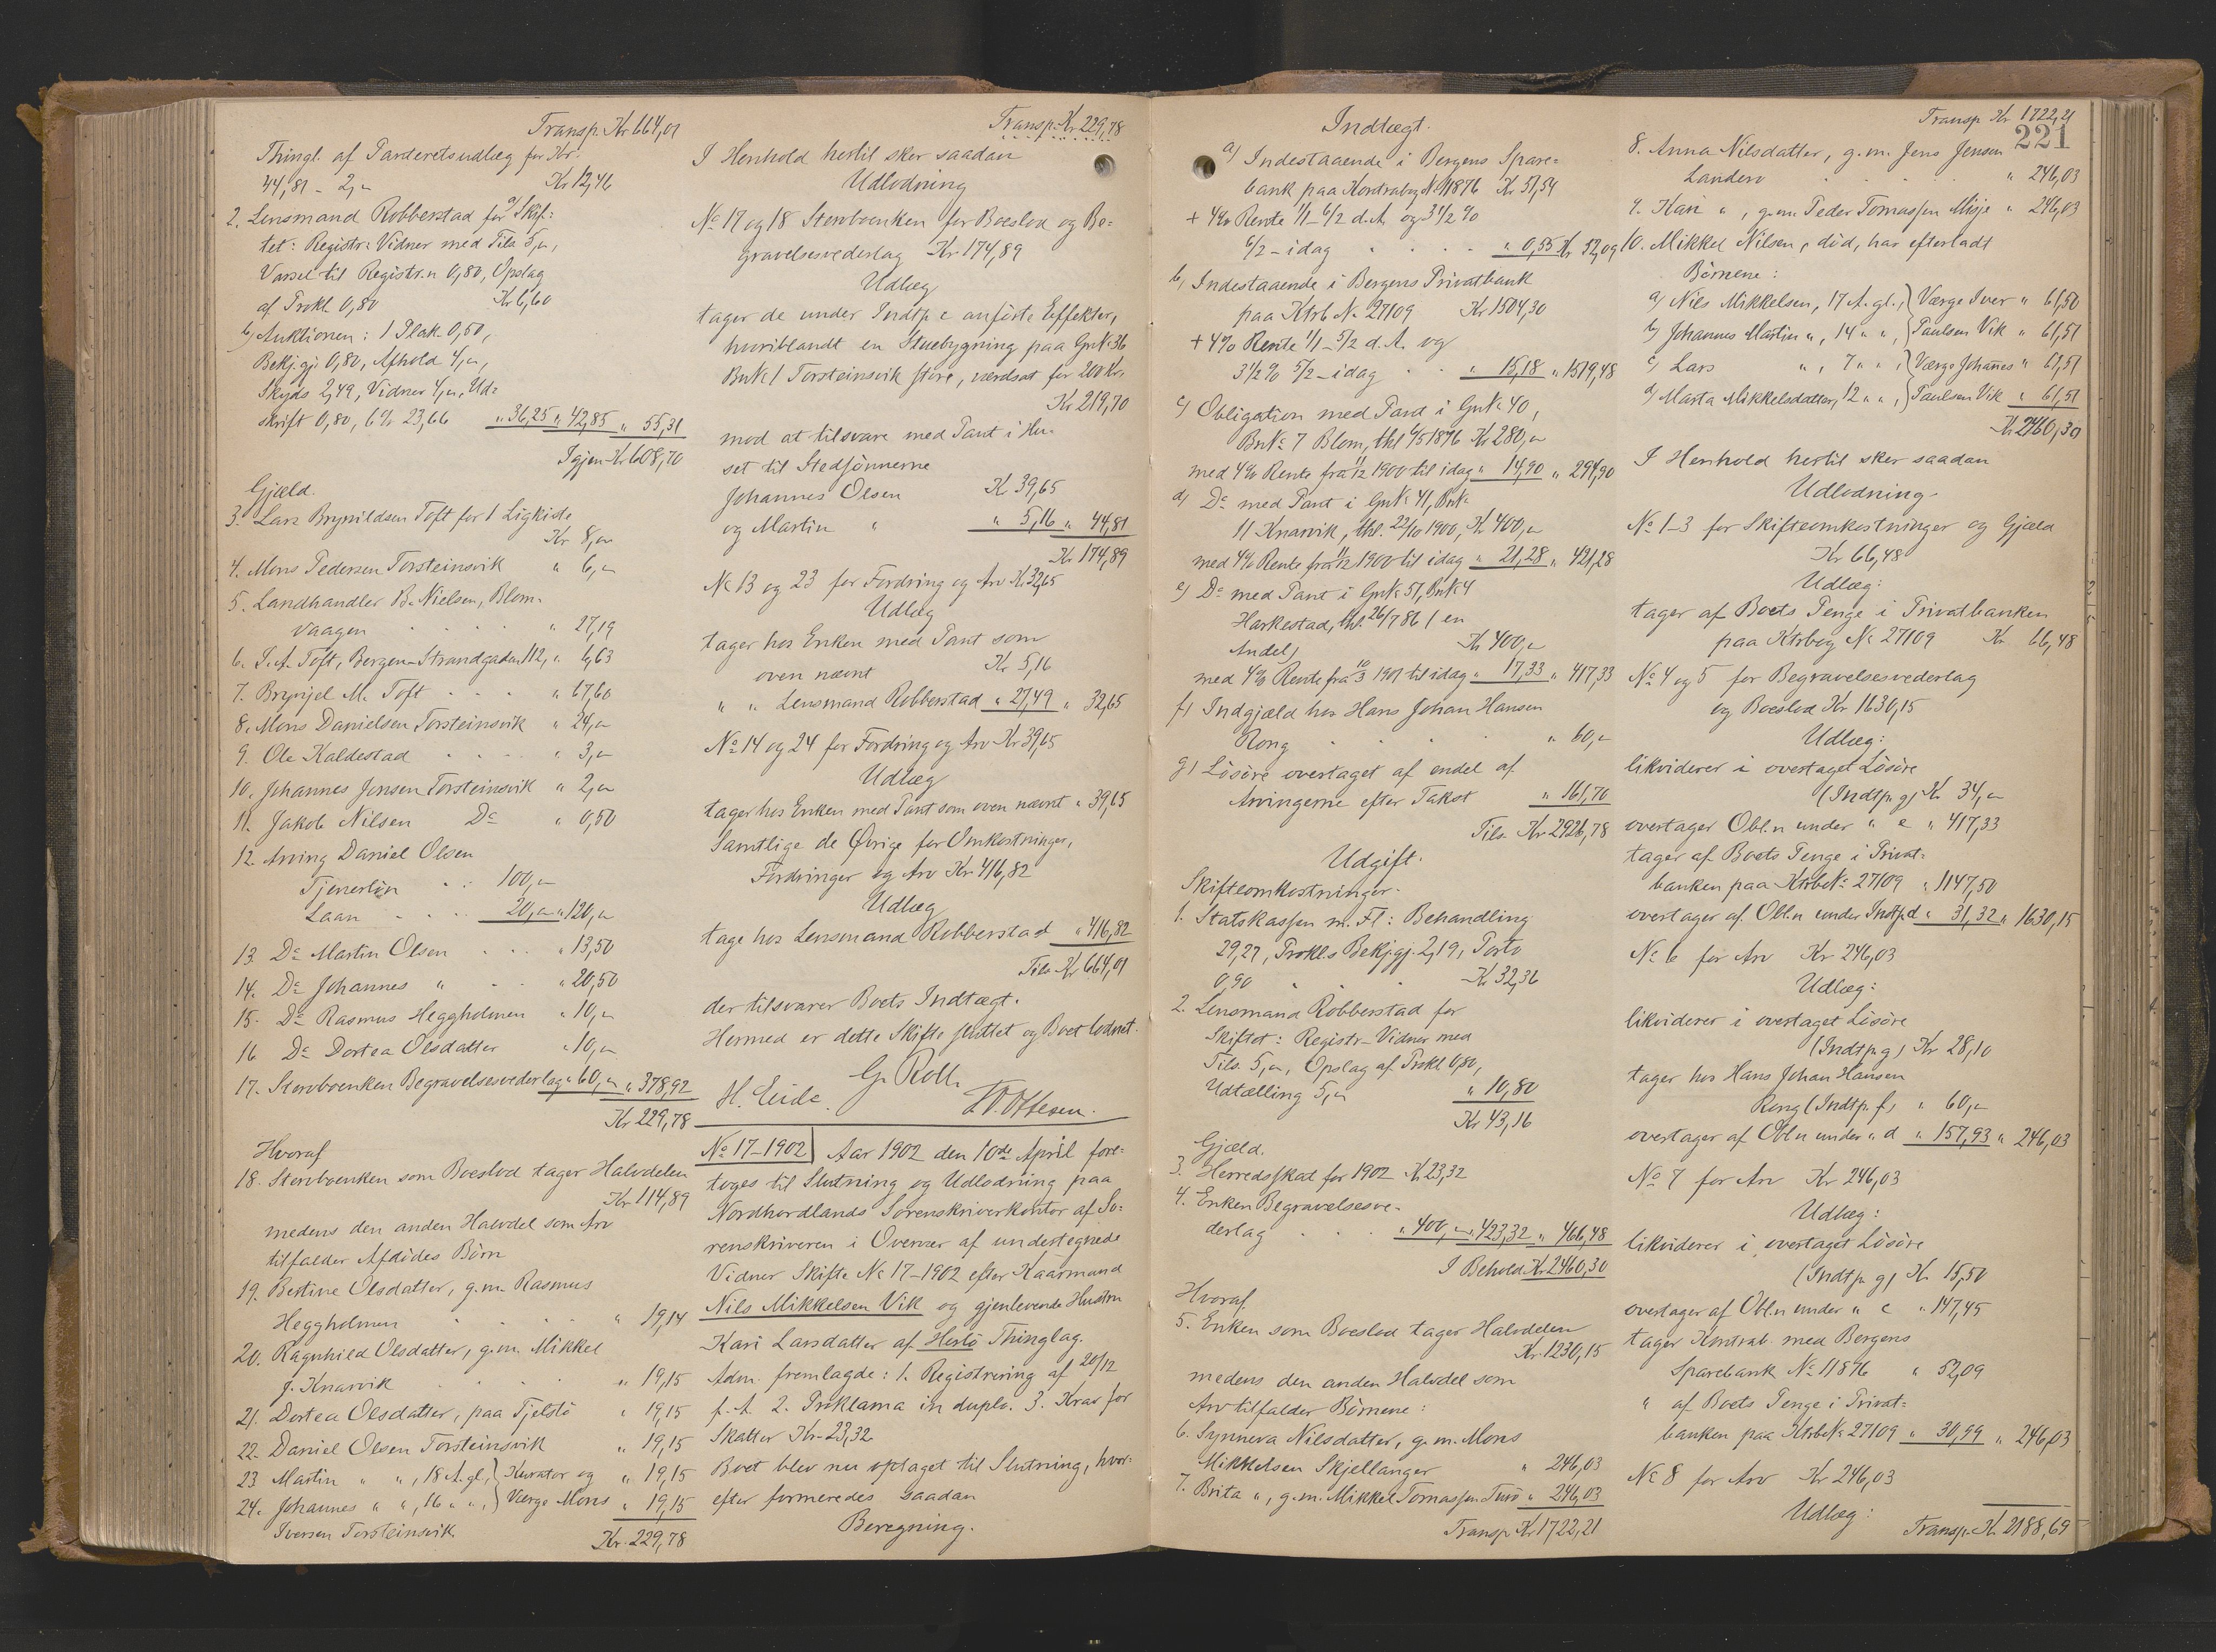 Transp. Kr 664,01
Thingl. af Panderetsudlæg for Kr.
44,81 - 2,„ Kr 12,46
2. Lensmand Robberstad for a) Skif-
tet: Registr. Vidner med Tils 5,„,
Varsel til Registr.n 0,80, Opslag
af Prokl. 0,80 Kr 6,60
b) Auktionen: 1 Plak. 0,50,
Bekj.gj. 0,80, Afhold 4,„,
Skyds 2,49, Vidner 4,„, Ud-
skrift 0,80, 6% 23,66 „ 36,25 „ 42,85 „ 55,31
Igjen Kr 608,70
Gjæld.
3. Lars Brynildsen Toft for 1 Ligkiste
Kr 8,„
4. Mons Pedersen Torsteinsvik „ 6,„
5. Landhandler B. Nielsen, Blom-
vaagen „ 27,19
6. J. A. Toft, Bergen Strandgaden 112, „ 6,63
7. Brynjel M. Toft „ 67,60
8. Mons Danielsen Torsteinsvik „ 24,„
9. Ole Kaldestad „ 3,„
10. Johannes Jonsen Torsteinsvik „ 2,„
11. Jakob Nilsen Do „ 0,50
12. Arving Daniel Olsen
Tjenerløn 100,„
Laan 20,„ „ 120,„
13. Do Martin Olsen „ 13,50
14. Do Johannes „ „ 20,50
15. Do Rasmus Heggholmen „ 10,„
16 Do Dortea Olsdatter „ 10,„
17. Stervboenken Begravelsesvederlag „ 60,„ „ 378,92
Kr 229,78
Hvoraf
18. Stervboenken som Boeslod tager Halvdelen
Kr 114,89
medens den anden Halvdel som Arv
tilfalder Afdødes Børn
19. Bertine Olsdatter, g.m. Rasmus
Heggholmen „ 19,14
20. Ragnhild Olsdatter, g.m. Mikkel
J. Knarvik „ 19,15
21. Dortea Olsdatter, paa Tjelstø „ 19,15
22. Daniel Olsen Torsteinsvik „ 19,15
23 Martin „ „, 18 A. gl., } Kurator og „ 19,15
24. Johannes „ „, 16 „ „, } Værge Mons „ 19,15
Iversen Torsteinsvik
Kr. 229,78
Transp. Kr 229,78
I Henhold hertil sker saadan
Udlodning
No 17 og 18 Stervboenken for Boeslod og Be-
gravelsesvederlag Kr 174,89
Udlæg
tager de under Indtp c anførte Effekter,
hvoriblandt en Stuebygning paa GnNo 36
BnNo 1 Torsteinsvik store, værdsat for 200 Kr,
Kr 219,70
mod at tilsvare med Pant i Hu-
set til Stedsønnerne
Johannes Olsen Kr 39,65
og Martin „ „ 5,16 „ 44,81
Kr 174,89
No 13 og 23 for Fordring og Arv Kr 32,65
Udlæg
tager hos Enken med Pant som
oven nævnt Kr 5,16
„ „ Lensmand Robberstad „ 27,49 „ 32,65
No 14 og 24 for Fordring og Arv Kr 39,65
Udlæg
tager hos Enken med Pant som oven nævnt „ 39,65
Samtlige de Øvrige for Omkostninger,
Fordringer og Arv Kr 416,82
Udlæg
tage hos Lensmand Robberstad „ 416,82
Tils Kr 664,01
der tilsvarer Boets Indtægt.
Hermed er dette Skifte sluttet og Boet lodnet.
G. Roll.
H. Eide. Ottesen.
No 17-1902) Aar 1902 den 10de April fore-
toges til Slutning og Udlodning paa
Nordhordlands Sorenskriverkontor af So-
renskriveren i Overvær af undertegnede
Vidner Skifte No 17-1902 efter Kaarmand
Nils Mikkelsen Vik og gjenlevende Hustru
Kari Larsdatter af Herlø Thinglag.
Adm. fremlagde: 1. Registrering af 20/12
f. A. 2. Proklama in duplo. 3. Krav for
Skatter Kr. 23,32
Boet blev nu optaget til Slutning, hvor-
efter formeredes saadan
Beregning.
Indtægt.
a) Indestaaende i Bergens Spare-
bank paa Kontrabog No 11876 Kr 51,54
+ 4% Rente 1/1 - 6/2 d.A. og 3 1/2 %
6/2 - idag „ 0,55 Kr 52,09
b) Indestaaende i Bergens Privatbank
paa Ktrb No 27109 Kr 1504,30
+ 4% Rente 1/1 - 5/2 d.A. og
3 1/2 % 5/2 - idag „ 15,18 „ 1519,48
c) Obligation med Pant i GnNo 40,
BnNo 7 Blom, thl 6/5 1896 Kr 280,„
med 4% Rente fra 11/12 1900 til idag „ 14,90 „ 294,90
d) Do med Pant i GnNo 41, BnNo
11 Knarvik, thl. 22/10 1900, Kr 400,„
med 4% Rente fra 11/12 1900 til idag „ 21,28 „ 421,28
e) Do med Pant i GnNo 51, BnNo 4
Harkestad, thl. 26/7 86 (en
Andel) Kr 400,„
med 4% Rente fra 10/3 1901 til idag „ 17,33 „ 417,33
f) Indgjæld hos Hans Johan Hansen
Rong „ 60,„
g) Løsøre overtaget af endel af
Arvingerne efter Takst „ 161,70
Tils. Kr 2926,78
Udgift.
Skifteomkostninger.
1. Statskassen m. Fl: Behandling
29,27, Prokl.s Bekj.gj. 2,19, Porto
0,90 Kr 32,36
2. Lensmand Robberstad for
Skiftet: Registr-Vidner med
Tils. 5,„, Opslag af Prokl 0,80,
Udtælling 5,„ „ 10,80
Kr 43,16
Gjæld.
3. Herredsskat for 1902 Kr 23,32
4. Enken Begravelsesve-
derlag „ 400,„ „ 423,32 „ 466,48
I Behold Kr 2460,30
Hvoraf
5. Enken som Boeslod tager Halvdelen
Kr 1230,15
medens den anden Halvdel som
Arv tilfalder Børnene:
6. Synneva Nilsdatter, g.m. Mons
Mikkelsen Skjellanger „ 246,03
7. Brita „, g.m. Mikkel Tomassen Turø „ 246,03
Transp Kr 1722,21
Transp Kr 1722,21
221
8. Anna Nilsdatter, g.m. Jens Jensen
Landero „ 246,03
9. Kari „, g.m. Peder Tomassen Misje „ 246,03
10. Mikkel Nilsen, død, har efterladt
Børnene:
a) Nils Mikkelsen, 17 A. gl., } Værge Iver „ 61,50
b) Johannes Martin „, 14 „ „, } Paulsen Vik „ 61,51
c) Lars „ „, 7 „ „, } Værge Johannes „ 61,51
d) Marta Mikkelsdatter, 12 „ „, } Paulsen Vik „ 61,51
Kr 2460,30
I Henhold hertil sker saadan
Udlodning
No 1-3 for Skifteomkostninger og Gjæld
Kr 66,48
Udlæg:
tager af Boets Penge i Privatbanken
paa Ktrbog No 27109 Kr 66,48
No 4 og 5 for Begravelsesvederlag
og Boeslod Kr 1630,15
Udlæg:
likviderer i overtaget Løsøre
(Indtp. g) Kr 34,„
overtager Obl.n under „ e „ 417,33
tager af Boets Penge i Privat-
banken paa KtrbNo 27109 „ 1147,50
overtager af Obl.n under Indtp. d „ 31,32 „ 1630,15
No 6 for Arv Kr 246,03
Udlæg:
likviderer i overtaget Løsøre
(Indtp g) Kr 28,10
tager hos Hans Johan Hansen
Rong (Indtp. f) „ 60,„
overtager af Obl.n under „ d „ 157,93 „ 246,03
No 7 for Arv Kr 246,03
Udlæg:
likviderer i overtaget Løsøre
(Indtp g) Kr 15,50
overtager af Obl.n under „ c „ 147,45
tager Kontrab. med Bergens
Sparebank No 11876 „ 52,09
„ af Boets Penge i Privat-
banken paa KtrbNo 27109 „ 30,99 „ 246,03
No 8 for Arv Kr 246,03
Udlæg:
Transp. Kr 2188,69